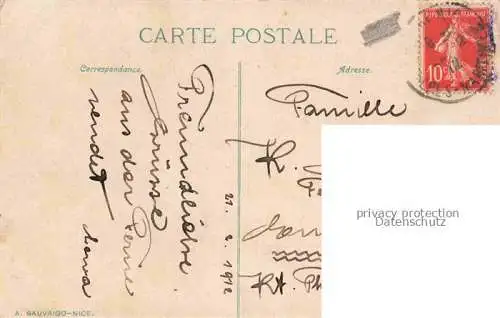 CARTE POSTALE
Correspondance.
Adresse.
REPUBLIQUE FRANÇAISE
10
Freundliche
Grüsse
aus der Ferne
sendet
21. 2. 1912
Familie
privacy protection
Datenschutz
A. GAUVAIGO-NICE.